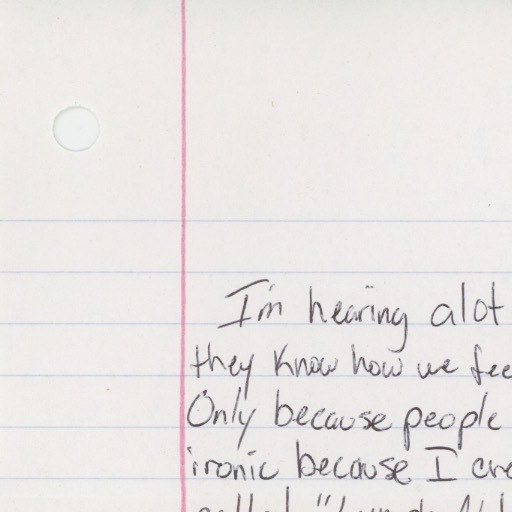 I'm hearing alot
they know how we fee
Only because people
ironic because I cre